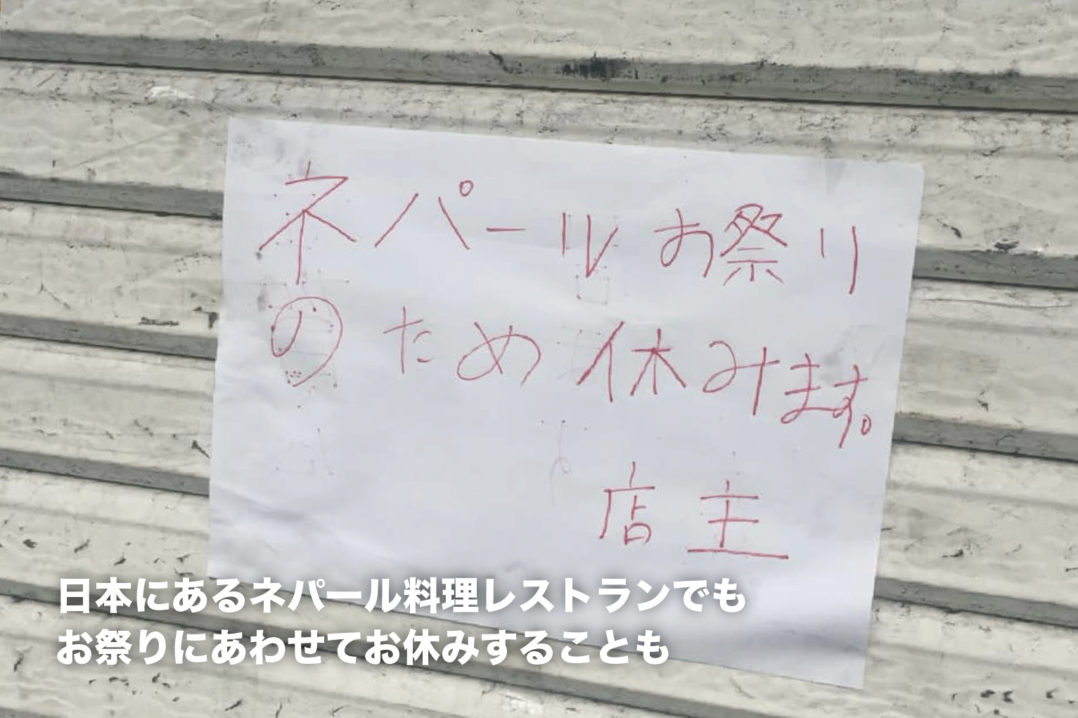 ネパールお祭り
のため休みます。
店主
日本にあるネパール料理レストランでも
お祭りにあわせてお休みすることも